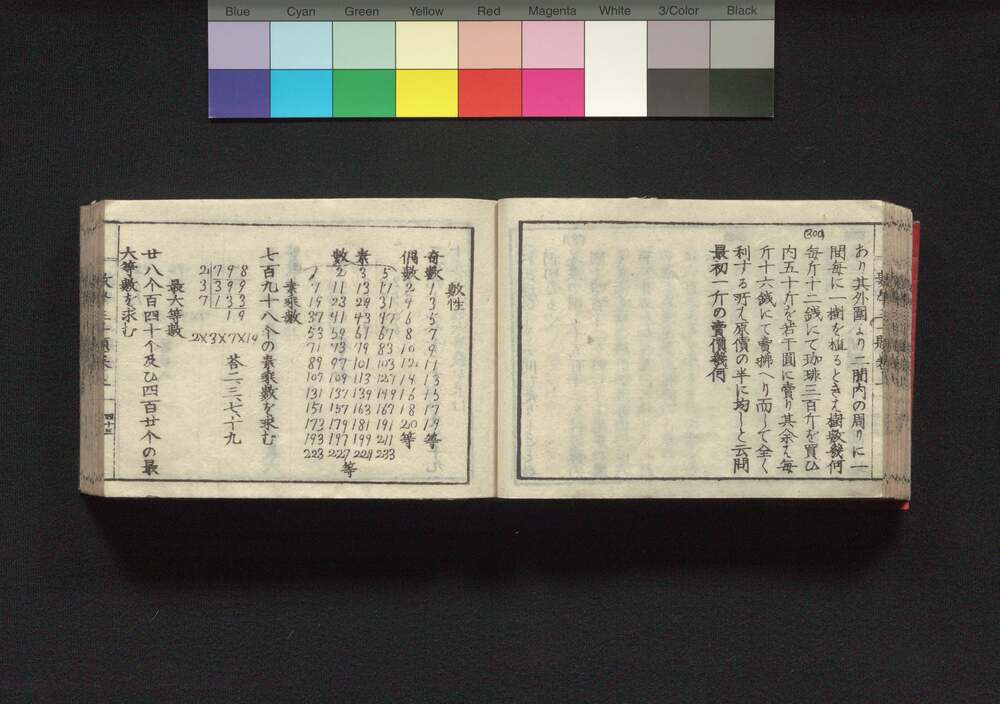 Blue Cyan Green Yellow Red Magenta White 3/Color Black
あり其外囲より二間内の周りに一
間毎に一樹を植るときハ樹数幾何
(300)
毎斤十二銭にて珈琲三百斤を買ひ
内五十斤を若干圓に賣り其余ハ毎
斤十六銭にて賣拂へり而して全く
利する所ハ原價の半に均しと云問
最初一斤の賣價幾何
數性
奇數 1 3 5 7 9 11 13 15 17 19 等
偶數 2 4 6 8 10 12 14 16 18 20 等
素數
1 2 3 5
7 11 13 17
19 23 29 31
37 41 43 47
53 59 61 67
71 73 79 83
89 97 101 103
107 109 113 127
131 137 139 149
151 157 163 167
173 179 181 191
193 197 199 211
223 227 229 233
等
素乘數
七百九十八个の素乘數を求む
答二、三、七、十九
2 798
3 399
7 133
19
2×3×7×19
最大等數
廿八个百四十个及ひ四百廿个の最
大等數を求む
四十三